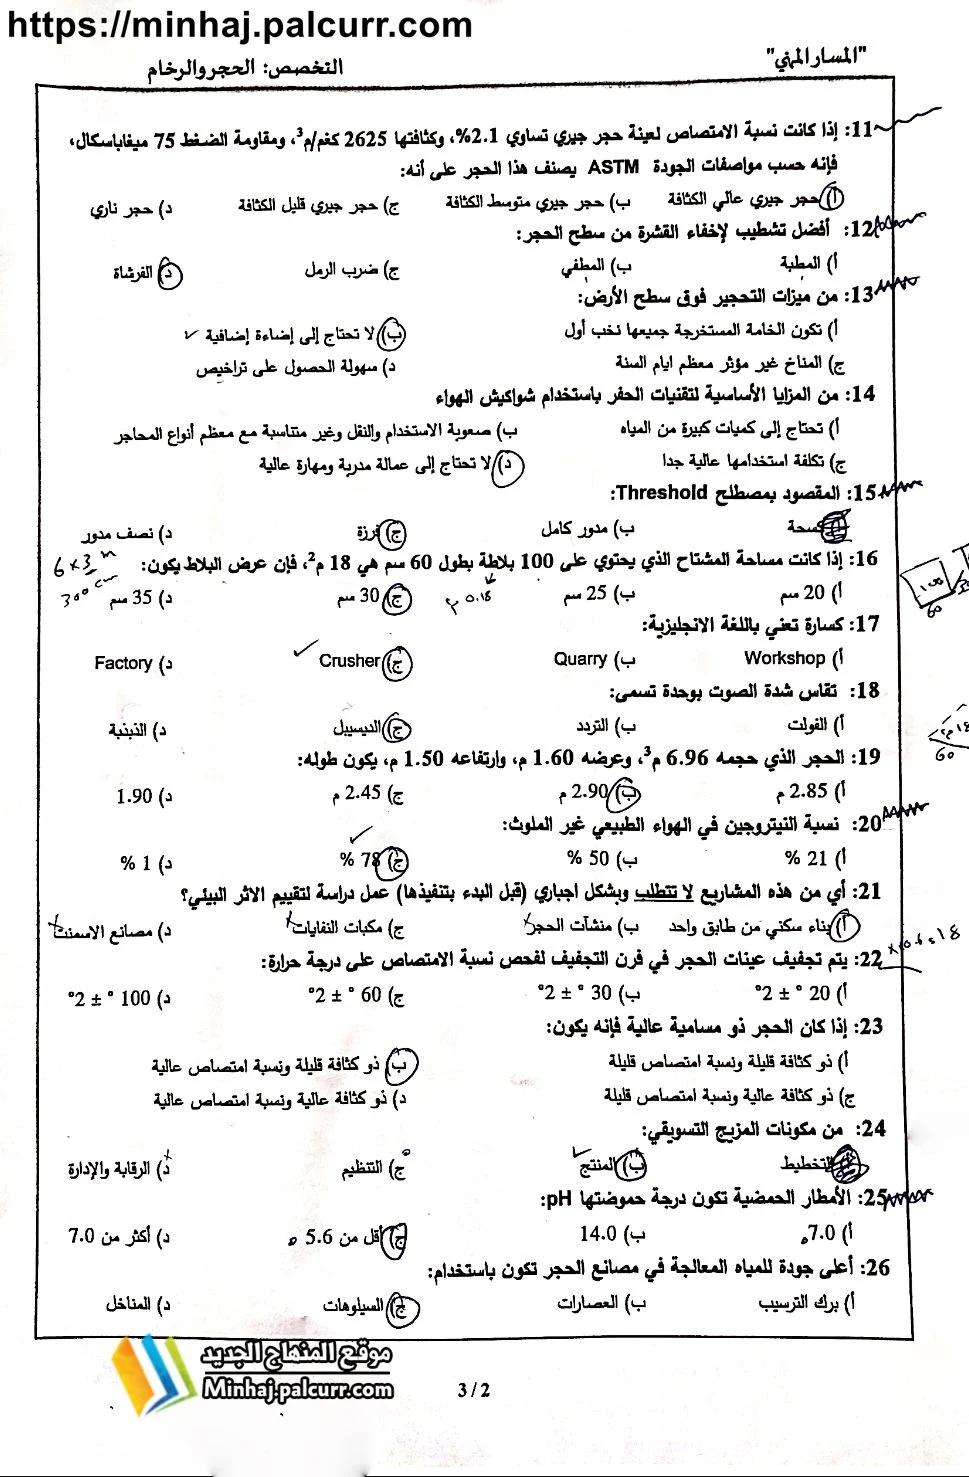 https://minhaj.palcurr.com
"المسار المهني" التخصص: الحجر والرخام
11: إذا كانت نسبة الامتصاص لعينة حجر جيري تساوي 2.1%، وكثافتها 2625 كغم/م³، ومقاومة الضغط 75 ميغاباسكال،
فإنه حسب مواصفات الجودة ASTM يصنف هذا الحجر على أنه:
أ) حجر جيري عالي الكثافة ب) حجر جيري متوسط الكثافة ج) حجر جيري قليل الكثافة د) حجر ناري
12: أفضل تشطيب لإخفاء القشرة من سطح الحجر:
أ) المطبة ب) المطفي ج) ضرب الرمل د) الفرشاة
13: من ميزات التحجير فوق سطح الأرض:
أ) تكون الخامة المستخرجة جميعها نخب أول ب) لا تحتاج إلى إضاءة إضافية
ج) المناخ غير مؤثر معظم ايام السنة د) سهولة الحصول على تراخيص
14: من المزايا الأساسية لتقنيات الحفر باستخدام شواكيش الهواء
أ) تحتاج إلى كميات كبيرة من المياه ب) صعوبة الاستخدام والنقل وغير متناسبة مع معظم أنواع المحاجر
ج) تكلفة استخدامها عالية جدا د) لا تحتاج إلى عمالة مدربة ومهارة عالية
15: المقصود بمصطلح Threshold:
ب) مدور كامل ج) فرزة د) نصف مدور
16: إذا كانت مساحة المشتاح الذي يحتوي على 100 بلاطة بطول 60 سم هي 18 م²، فإن عرض البلاط يكون: 6 x 3 m
أ) 20 سم ب) 25 سم 0.18 م ج) 30 سم د) 35 سم 300 cm
100
60
17: كسارة تعني باللغة الانجليزية:
أ) Workshop ب) Quarry ج) Crusher د) Factory
18: تقاس شدة الصوت بوحدة تسمى:
أ) الفولت ب) التردد ج) الديسيبل د) الذبذبة
60
19: الحجر الذي حجمه 6.96 م³، وعرضه 1.60 م، وارتفاعه 1.50 م، يكون طوله:
أ) 2.85 م ب) 2.90 م ج) 2.45 م د) 1.90
20: نسبة النيتروجين في الهواء الطبيعي غير الملوث:
أ) 21 % ب) 50 % ج) 78 % د) 1 %
21: أي من هذه المشاريع لا تتطلب وبشكل اجباري (قبل البدء بتنفيذها) عمل دراسة لتقييم الاثر البيئي؟
أ) بناء سكني من طابق واحد ب) منشآت الحجر ج) مكبات النفايات د) مصانع الاسمنت
22: يتم تجفيف عينات الحجر في فرن التجفيف لفحص نسبة الامتصاص على درجة حرارة:
أ) 20 ° ± 2° ب) 30 ° ± 2° ج) 60 ° ± 2° د) 100 ° ± 2°
23: إذا كان الحجر ذو مسامية عالية فإنه يكون:
أ) ذو كثافة قليلة ونسبة امتصاص قليلة ب) ذو كثافة قليلة ونسبة امتصاص عالية
ج) ذو كثافة عالية ونسبة امتصاص قليلة د) ذو كثافة عالية ونسبة امتصاص عالية
24: من مكونات المزيج التسويقي:
التخطيط ب) المنتج ج) التنظيم د) الرقابة والإدارة
25: الأمطار الحمضية تكون درجة حموضتها pH:
أ) 7.0 ب) 14.0 ج) أقل من 5.6 د) أكثر من 7.0
26: أعلى جودة للمياه المعالجة في مصانع الحجر تكون باستخدام:
أ) برك الترسيب ب) العصارات ج) السيلوهات د) المناخل
موقع المنهاج الجديد
Minhaj.palcurr.com
3 / 2